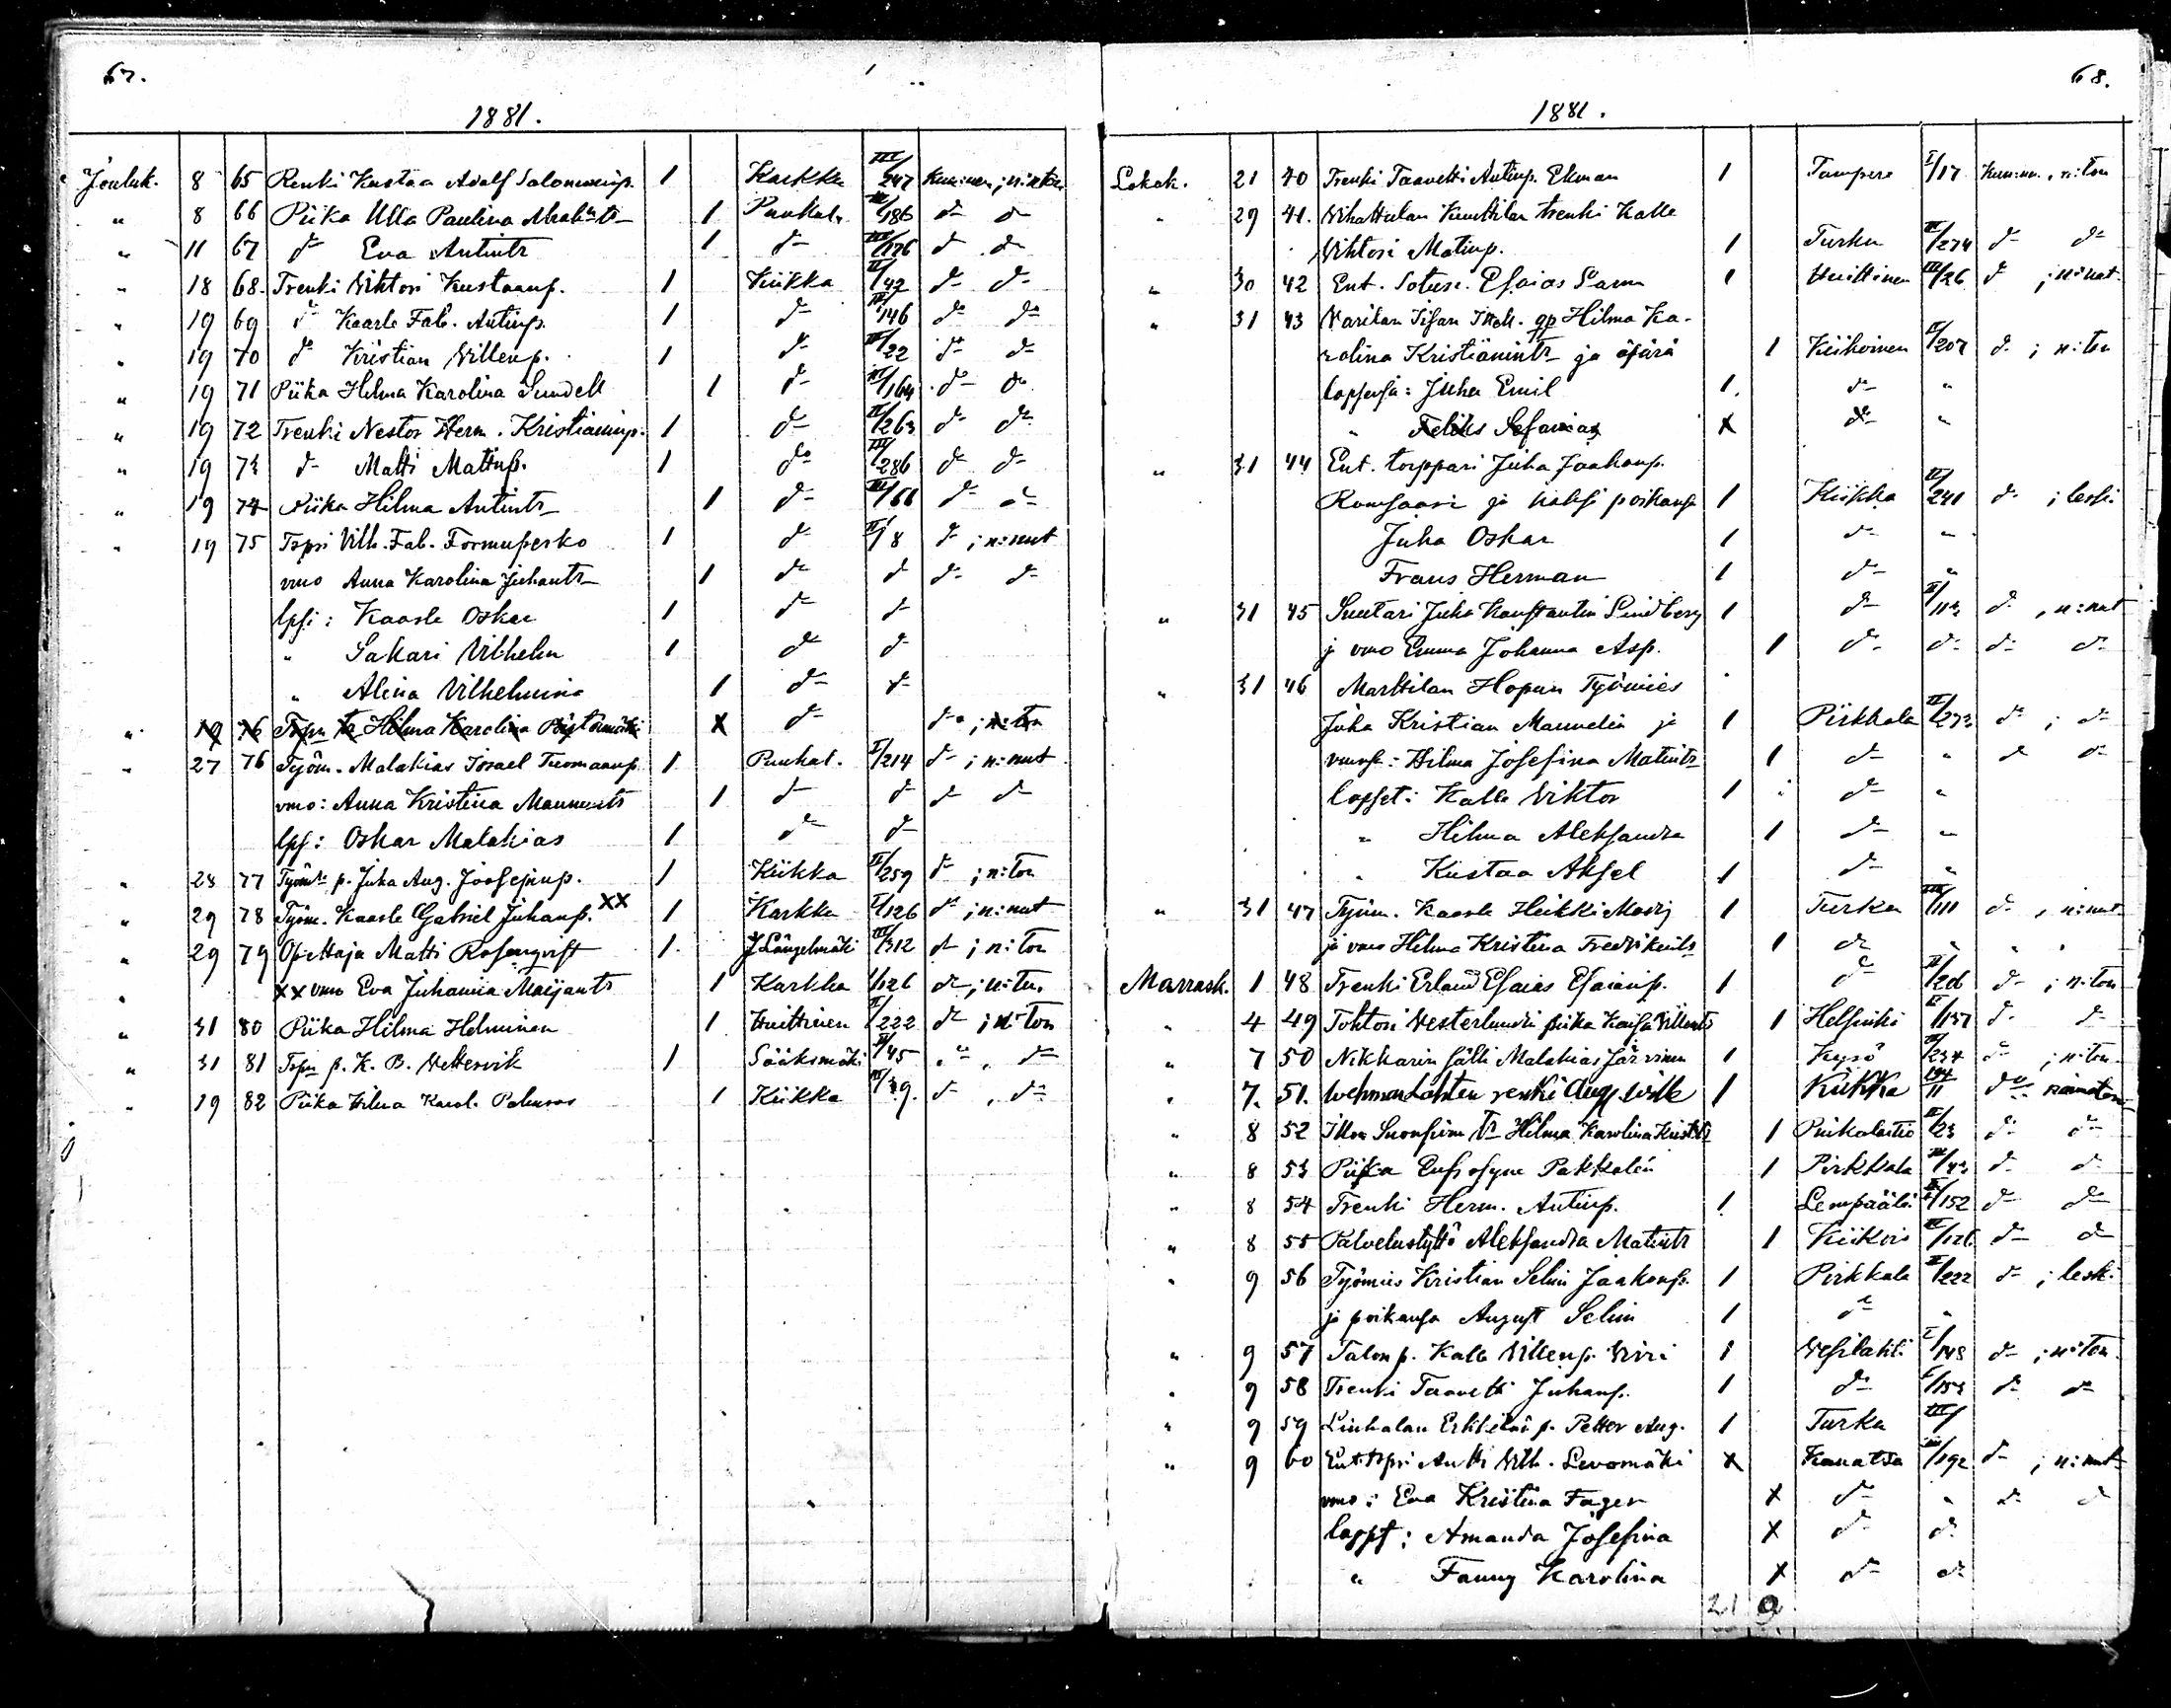 67.
1881.
Jouluk. 8 65 Renki Kustaa Adolf Salomoninp. 1 Karkku III/247 kun:nen ; n:ton
" 8 66 Piika Ulla Paulina 1 Punkal. III/186 d:o d:o
" 11 67 d:o Eva Antintr 1 d:o III/176 d:o d:o
" 18 68. Trenki Vihtori Kustaanp. 1 Kiikka II/42 d:o d:o
" 19 69 d:o Kaarle Fab. Antinp. 1 d:o III/146 d:o d:o
" 19 70 d:o Kristian Villenp. 1 d:o III/22 d:o d:o
" 19 71 Piika Hilma Karolina Sundell 1 d:o III/164 d:o d:o
" 19 72 Trenki Nestor Herm. Kristianinp. 1 d:o II/263 d:o d:o
" 19 73 d:o Matti Matinp. 1 d:o III/286 d:o d:o
" 19 74 Piika Hilma Antintr 1 d:o III/66 d:o d:o
" 19 75 Tspri Vilh. Fab. Formuperko 1 d:o II/8 d:o ; n:nut
vmo Anna Karolina Juhantr 1 d:o d:o d:o d:o
lpsi: Kaarle Oskar 1 d:o d:o
" Sakari Vilhelm 1 d:o d:o
" Alina Vilhelmina 1 d:o d:o
" 19 76 Hilma Karolina X d:o d:o ; n:ton
" 27 76 Työm. Malakias Israel Tuomaanp. 1 Punkal. I/214 d:o ; n:nut
vmo: Anna Kristina 1 d:o d:o d:o d:o
lps: Oskar Malakias 1 d:o d:o
" 28 77 p. Juha Aug. Joosepinp. 1 Kiikka II/259 d:o ; n:ton
" 29 78 Työm. Kaarle Gabriel Juhanp. XX 1 Karkku I/126 d:o ; n:nut
" 29 79 Opettaja Matti Rosenqvist 1 Längelmäki III/312 d:o ; n:ton
" XX vmo Eva Juhanna Maijantr 1 Karkku I/126 d:o ; n:tu.
" 31 80 Piika Hilma Helminen 1 Huittinen II/222 d:o ; n:ton
" 31 81 p. K. B. Vettervik 1 Sääksmäki II/45 " , d:o
" 19 82 Piika Hilma Karol. 1 Kiikka III/39. d:o , d:o
68.
1881.
Lokak. 21 40 Trenki Taavetti Antinp. Ekman 1 Tampere I/17 kun:nn. , n:ton
" 29 41. Vihattulan Kunttilan trenki Kalle
Vihtori Matinp. 1 Turku III/274 d:o d:o
" 30 42 Ent. Sotus. Esaias Sarm 1 Huittinen III/26 d:o ; n:nut.
" 31 43 Hilma Ka-
rolina Kristianintr ja äpärä 1 Kiikoinen II/207 d:o ; n:ton
lapsensa: Juha Emil 1. d:o "
" Feliks Sefanias X d:o "
" 31 44 Ent. torppari Juha Jaakonp.
ja kaksi poikansa 1 Kiikka II/241 d:o ; leski.
Juha Oskar 1 d:o "
Frans Herman 1 d:o "
" 31 45 Suutari Juha Konstantin Lindberg 1 d:o II/113 d:o , n:nut
j vmo Emma Johanna Asp. 1 d:o d:o d:o d:o
" 31 46 Marttilan Hopun Työmies
Juha Kristian Mannelin ja 1 Pirkkala II/273 d:o ; d:o
vmonsa: Hilma Josefina Matintr 1 d:o " d:o d:o
lapset: Kalle Viktor 1 d:o "
" Hilma Aleksandra 1 d:o "
" Kustaa Aksel 1 d:o "
" 31 47 Työm. Kaarle Heikki 1 Turku III/111 d:o , n:nut
ja vmo Hilma Kristina 1 d:o " " "
Marrask. 1 48 Trenki Erland Esaias Esaianp. 1 d:o II/206 d:o ; n:ton
" 4 49 Tohtori Vesterlundin piika Kaisa Villentr 1 Helsinki II/157 d:o d:o
" 7 50 Nikkarin sälli Malakias Järvinen 1 II/234 d:o ; n:ton
" 7. 51. renki Aug. Wilh 1 Kiikka 194/II d:o
" 8 52 Hilma Karolina 1 Punkalaitio II/23 d:o d:o
" 8 53 Piika Eufrosyne Pakkalén 1 Pirkkala III/43 d:o d:o
" 8 54 Trenki Herm. Antinp. 1 Lempäälä II/152 d:o d:o
" 8 55 Palvelustyttö Aleksandra Matintr 1 Kiikois III/126 d:o d:o
" 9 56 Työmies Kristian Selin Jaakonp. 1 Pirkkala II/222 d:o ; leski.
ja poikansa August Selin 1 d:o "
" 9 57 Talon p. Kalle Villenp. 1 Vesilahti I/148 d:o ; n:ton.
" 9 58 Trenki Taavetti Juhanp. 1 d:o I/153 d:o d:o
" 9 59 Liuhalan Erkkilän p. Petter Aug. 1 Turku III/
" 9 60 Ent. tspri Antti Vilh. Levomäki X Kauatsa III/192 d:o ; n:nut
vmo: Eva Kristina Fager X d:o " d:o d:o
lapst: Amanda Josefina X d:o d:o
" Fanny Karolina X d:o d:o
21 9